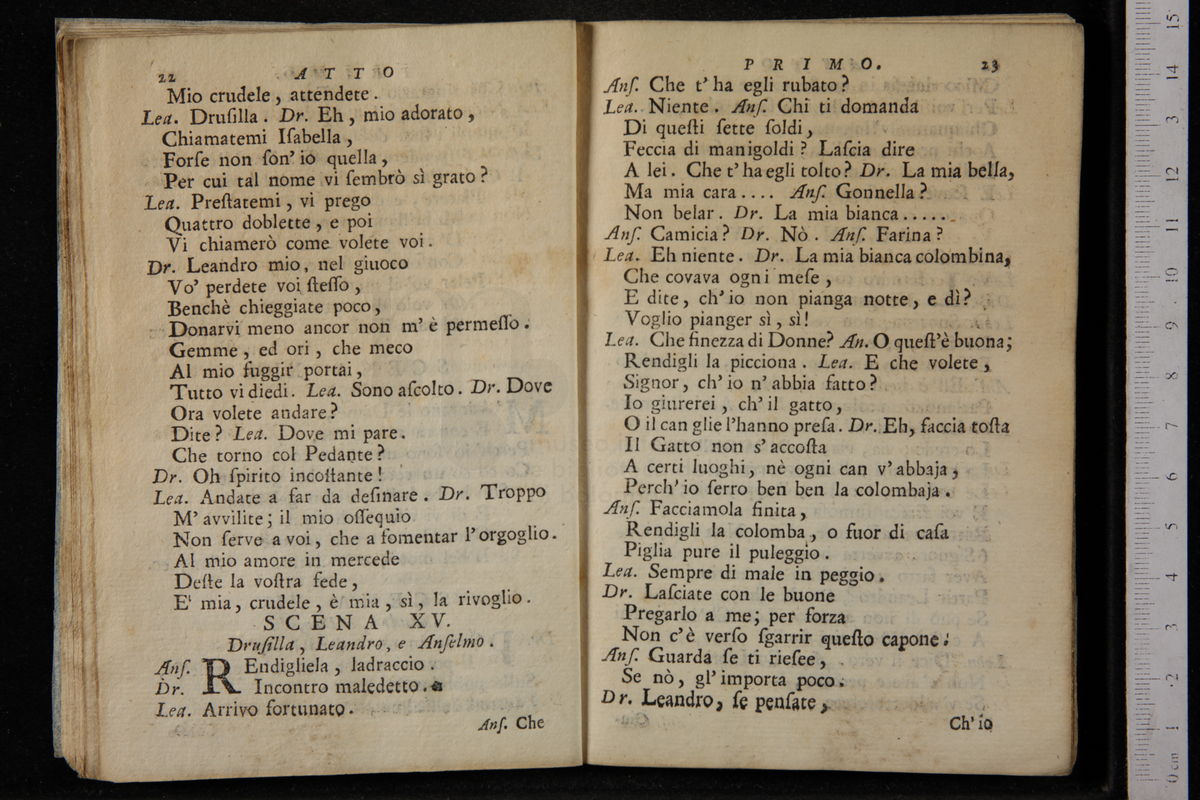 22 ATTO
Mio crudele, attendete.
Lea. Druſilla. Dr. Eh, mio adorato,
Chiamatemi Iſabella,
Forſe non ſon' io quella,
Per cui tal nome vi ſembrò sì grato?
Lea. Preſtatemi, vi prego
Quattro doblette, e poi
Vi chiamerò come volete voi.
Dr. Leandro mio, nel giuoco
Vo' perdete voi ſteſſo,
Benchè chieggiate poco,
Donarvi meno ancor non m' è permeſſo.
Gemme, ed ori, che meco
Al mio fuggir portai,
Tutto vi diedi. Lea. Sono aſcolto. Dr. Dove
Ora volete andare?
Dite? Lea. Dove mi pare.
Che torno col Pedante?
Dr. Oh ſpirito incoſtante!
Lea. Andate a far da deſinare. Dr. Troppo
M' avvilite; il mio oſſequio
Non ſerve a voi, che a fomentar l'orgoglio.
Al mio amore in mercede
Deſte la voſtra fede,
E' mia, crudele, è mia, sì, la rivoglio.
SCENA XV.
Druſilla, Leandro, e Anſelmo.
Anſ. REndigliela, ladraccio.
Dr. Incontro maledetto.
Lea. Arrivo fortunato.
Anſ. Che
PRIMO. 23
Anſ. Che t' ha egli rubato?
Lea. Niente. Anſ. Chi ti domanda
Di queſti ſette ſoldi,
Feccia di manigoldi? Laſcia dire
A lei. Che t' ha egli tolto? Dr. La mia bella,
Ma mia cara.... Anſ. Gonnella?
Non belar. Dr. La mia bianca.....
Anſ. Camicia? Dr. Nò. Anſ. Farina?
Lea. Eh niente. Dr. La mia bianca colombina,
Che covava ogni meſe,
E dite, ch' io non pianga notte, e dì?
Voglio pianger sì, sì!
Lea. Che finezza di Donne? An. O queſt'è buona;
Rendigli la picciona. Lea. E che volete,
Signor, ch' io n' abbia fatto?
Io giurerei, ch' il gatto,
O il can glie l'hanno preſa. Dr. Eh, faccia toſta
Il Gatto non s' accoſta
A certi luoghi, nè ogni can v' abbaja,
Perch' io ſerro ben ben la colombaja.
Anſ. Facciamola finita,
Rendigli la colomba, o fuor di caſa
Piglia pure il puleggio.
Lea. Sempre di male in peggio.
Dr. Laſciate con le buone
Pregarlo a me; per forza
Non c' è verſo ſgarrir queſto capone:
Anſ. Guarda ſe ti rieſee,
Se nò, gl' importa poco.
Dr. Leandro, ſe penſate,
Ch' io